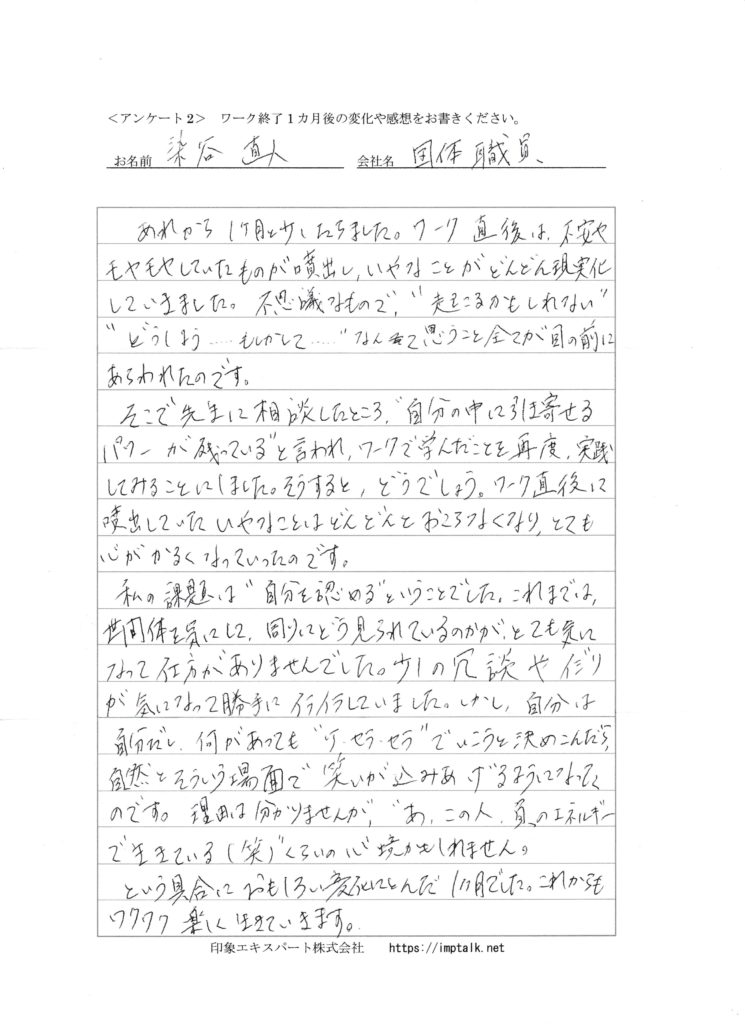 ＜アンケート2＞　ワーク終了1カ月後の変化や感想をお書きください。
お名前　染谷 直人　会社名　団体職員
あれから1ヶ月と少したちました。ワーク直後は、不安や
モヤモヤしていたものが噴出し、いやなことがどんどん現実化
していきました。不思議なもので、“起こるかもしれない”
“どうしよう……もしかして……”なんて思うこと全てが目の前に
あらわれたのです。
そこで先生に相談したところ、“自分の中に引き寄せる
パワーが残っている”と言われ、ワークで学んだことを再度、実践
してみることにしました。そうすると、どうでしょう。ワーク直後に
噴出していたいやなことはどんどんとおこらなくなり、とても
心がかるくなっていったのです。
私の課題は“自分を認める”ということでした。これまでは、
世間体を気にして、周りにどう見られているのかが、とても気に
なって仕方がありませんでした。少しの冗談やイジリ
が気になって勝手にイライラしていました。しかし、自分は
自分だし、何があっても“ケ・セラ・セラ”でいこうと決めこんだら、
自然とそういう場面で笑いが込みあげるようになってく
のです。理由は分かりませんが、“あ、この人、負のエネルギー
で生きている（笑）”くらいの心境かもしれません。
という具合におもしろい変化にとんだ1ヶ月でした。これからも
ワクワク楽しく生きていきます。
印象エキスパート株式会社　https://imptalk.net